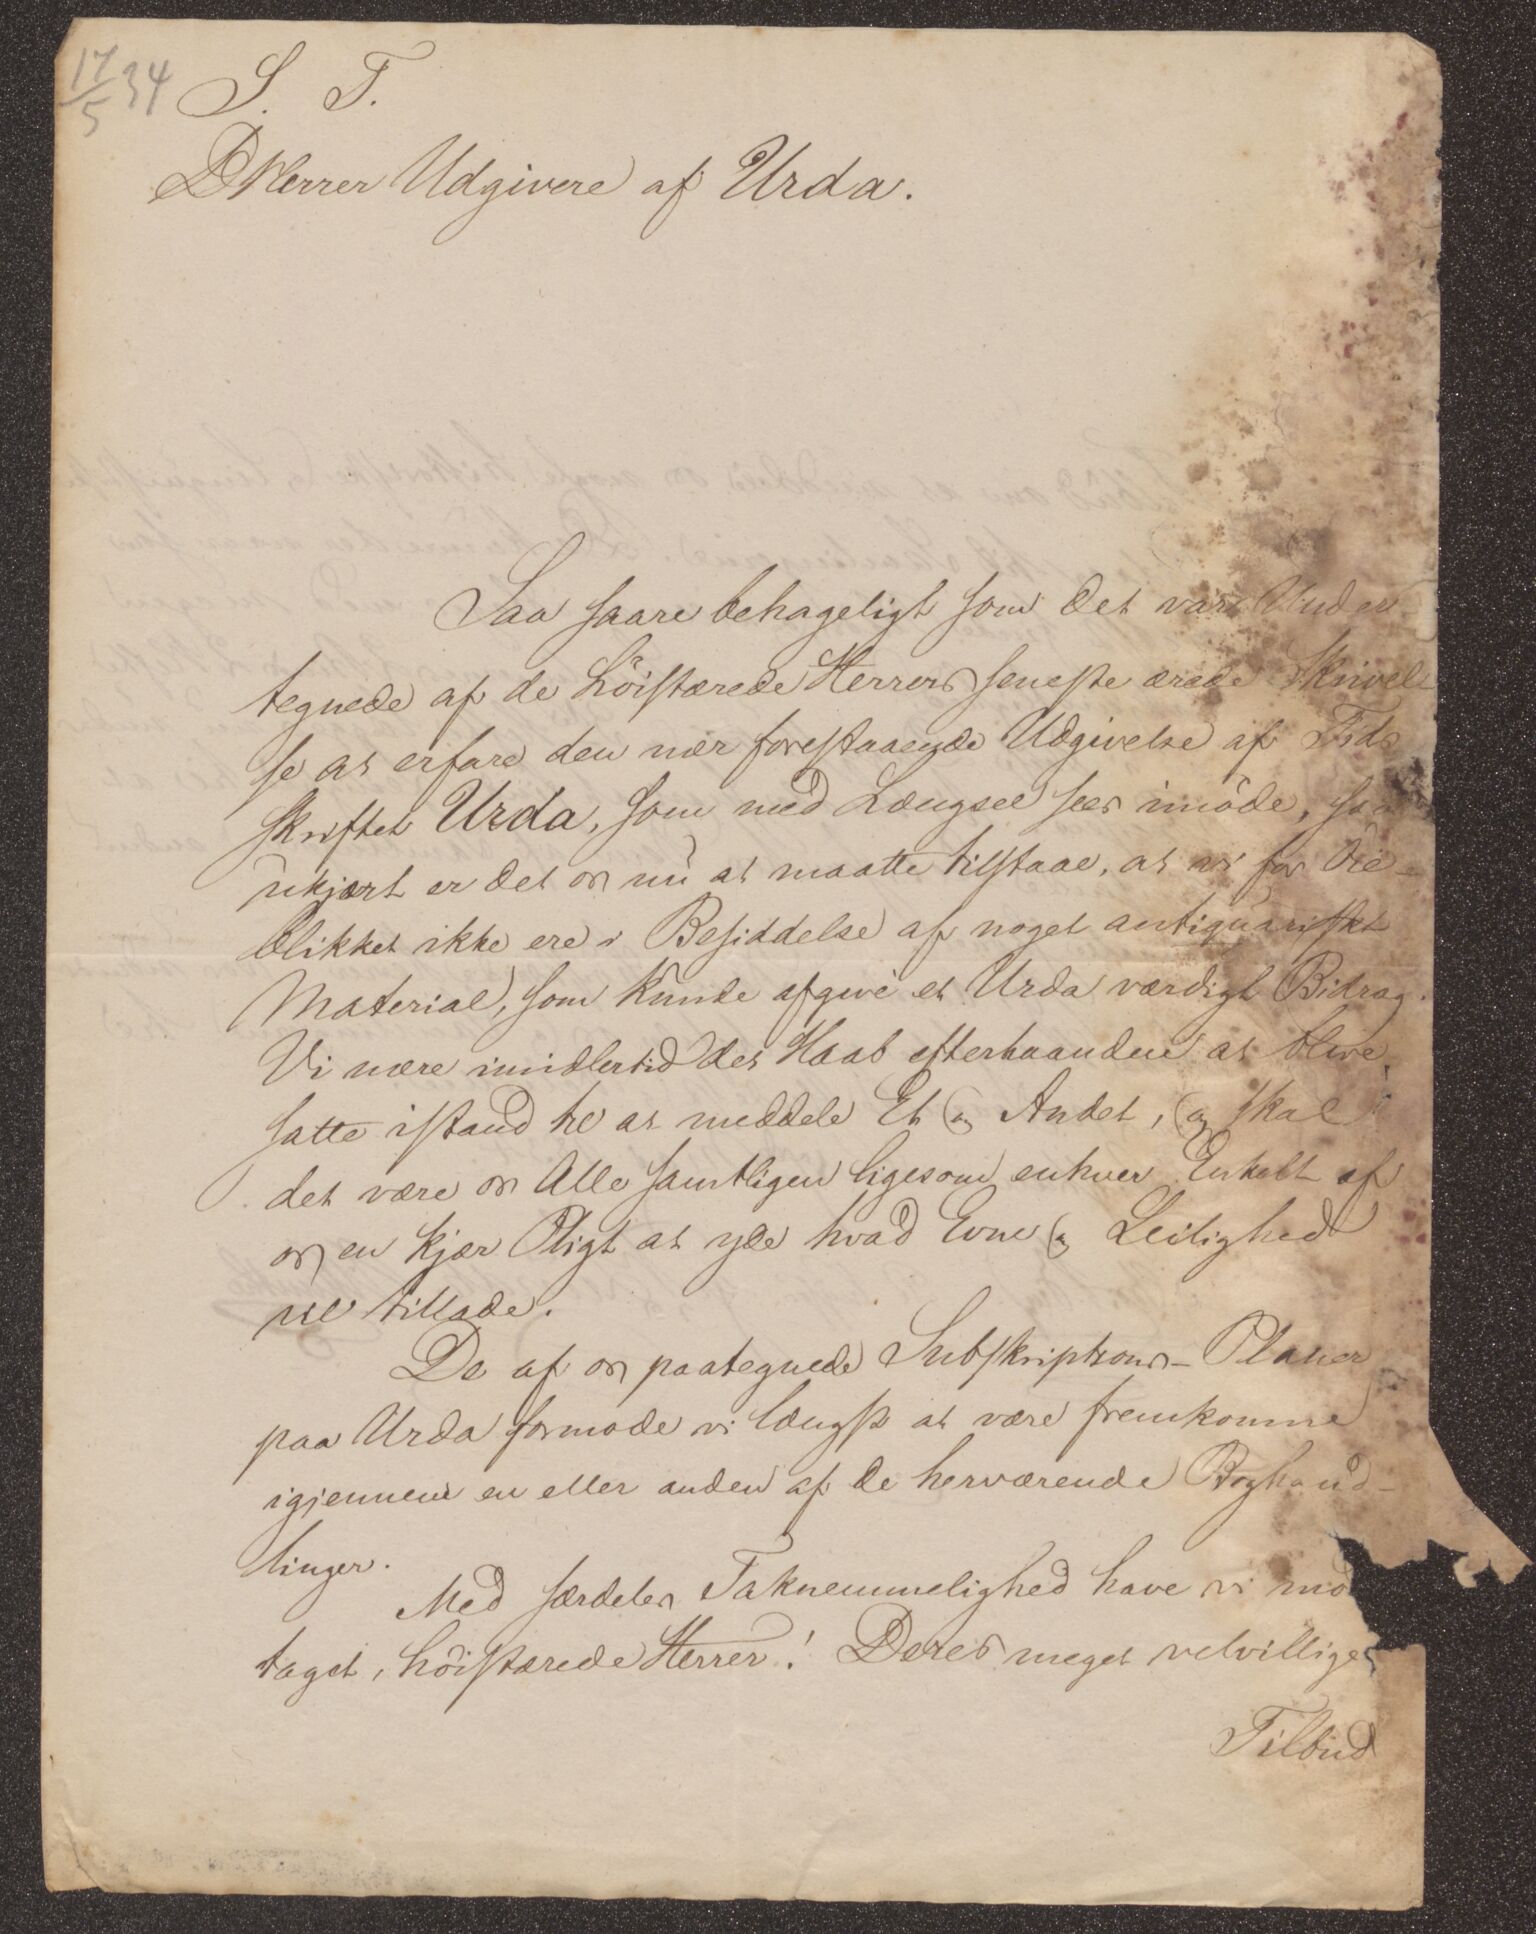 17/5 34
S. T.
DHerrer Udgivere af Urda.
Saa saare behageligt som det var Under
tegnede af de Höistærede Herrers seneste ærede Skrivel-
se at erfare den nær forestaaende Udgivelse af Tids
skriftet Urda, som med Længsel sees imöde, saa
ukjært er det os nu at maatte tilstaae, at vi for Öie-
blikket ikke ere i Besiddelse af noget antiquariskt
Material, som kunde afgive et Urda værdigt Bidrag.
Vi nære imidlertid det Haab efterhaanden at blive
satte istand til at meddele Et og Andet, og skal
det være os Alle samtligen ligesom enhver Enkelt af
os en kjær Pligt at yde hvad Evne og Leilighed
vil tillade.
De af os paategnede Subskriptions-Planer
paa Urda formode vi længst at være fremkomne
igjennem en eller anden af de herværende Boghand-
linger.
Med særdeles Taknemmelighed have vi mod
taget, höistærede Herrer! Deres meget velvillige
Tilbud